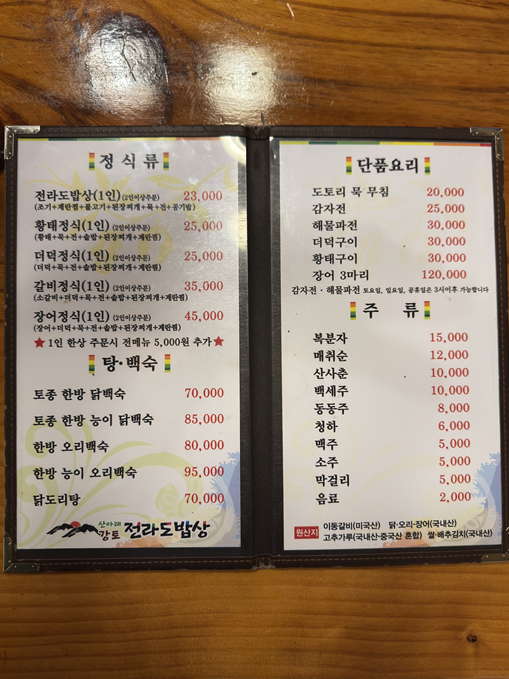 정식류
전라도밥상(1인) (2인이상주문) 23,000
(조기+계란찜+불고기+된장찌개+묵+전+공기밥)
황태정식(1인) (2인이상주문) 25,000
(황태+묵+전+솥밥+된장찌개+계란찜)
더덕정식(1인) (2인이상주문) 25,000
(더덕+묵+전+솥밥+된장찌개+계란찜)
갈비정식(1인) (2인이상주문) 35,000
(소갈비+더덕+묵+전+솥밥+된장찌개+계란찜)
장어정식(1인) (2인이상주문) 45,000
(장어+더덕+묵+전+솥밥+된장찌개+계란찜)
★1인 한상 주문시 전메뉴 5,000원 추가★
탕·백숙
토종 한방 닭백숙 70,000
토종 한방 능이 닭백숙 85,000
한방 오리백숙 80,000
한방 능이 오리백숙 95,000
닭도리탕 70,000
산아래
강토 전라도밥상
단품요리
도토리 묵 무침 20,000
감자전 25,000
해물파전 30,000
더덕구이 30,000
황태구이 30,000
장어 3마리 120,000
감자전·해물파전 토요일, 일요일, 공휴일은 3시이후 가능합니다
주 류
복분자 15,000
매취순 12,000
산사춘 10,000
백세주 10,000
동동주 8,000
청하 6,000
맥주 5,000
소주 5,000
막걸리 5,000
음료 2,000
원산지 이동갈비(미국산) 닭·오리·장어(국내산)
고추가루(국내산·중국산 혼합) 쌀·배추김치(국내산)